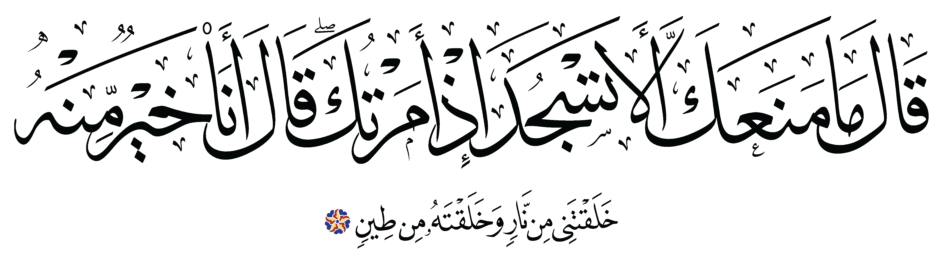 قَالَ مَا مَنَعَكَ أَلَّا تَسْجُدَ إِذْ أَمَرْتُكَ ۖ قَالَ أَنَا۠ خَيْرٌ مِّنْهُ
خَلَقْتَنِى مِن نَّارٍ وَخَلَقْتَهُۥ مِن طِينٍ